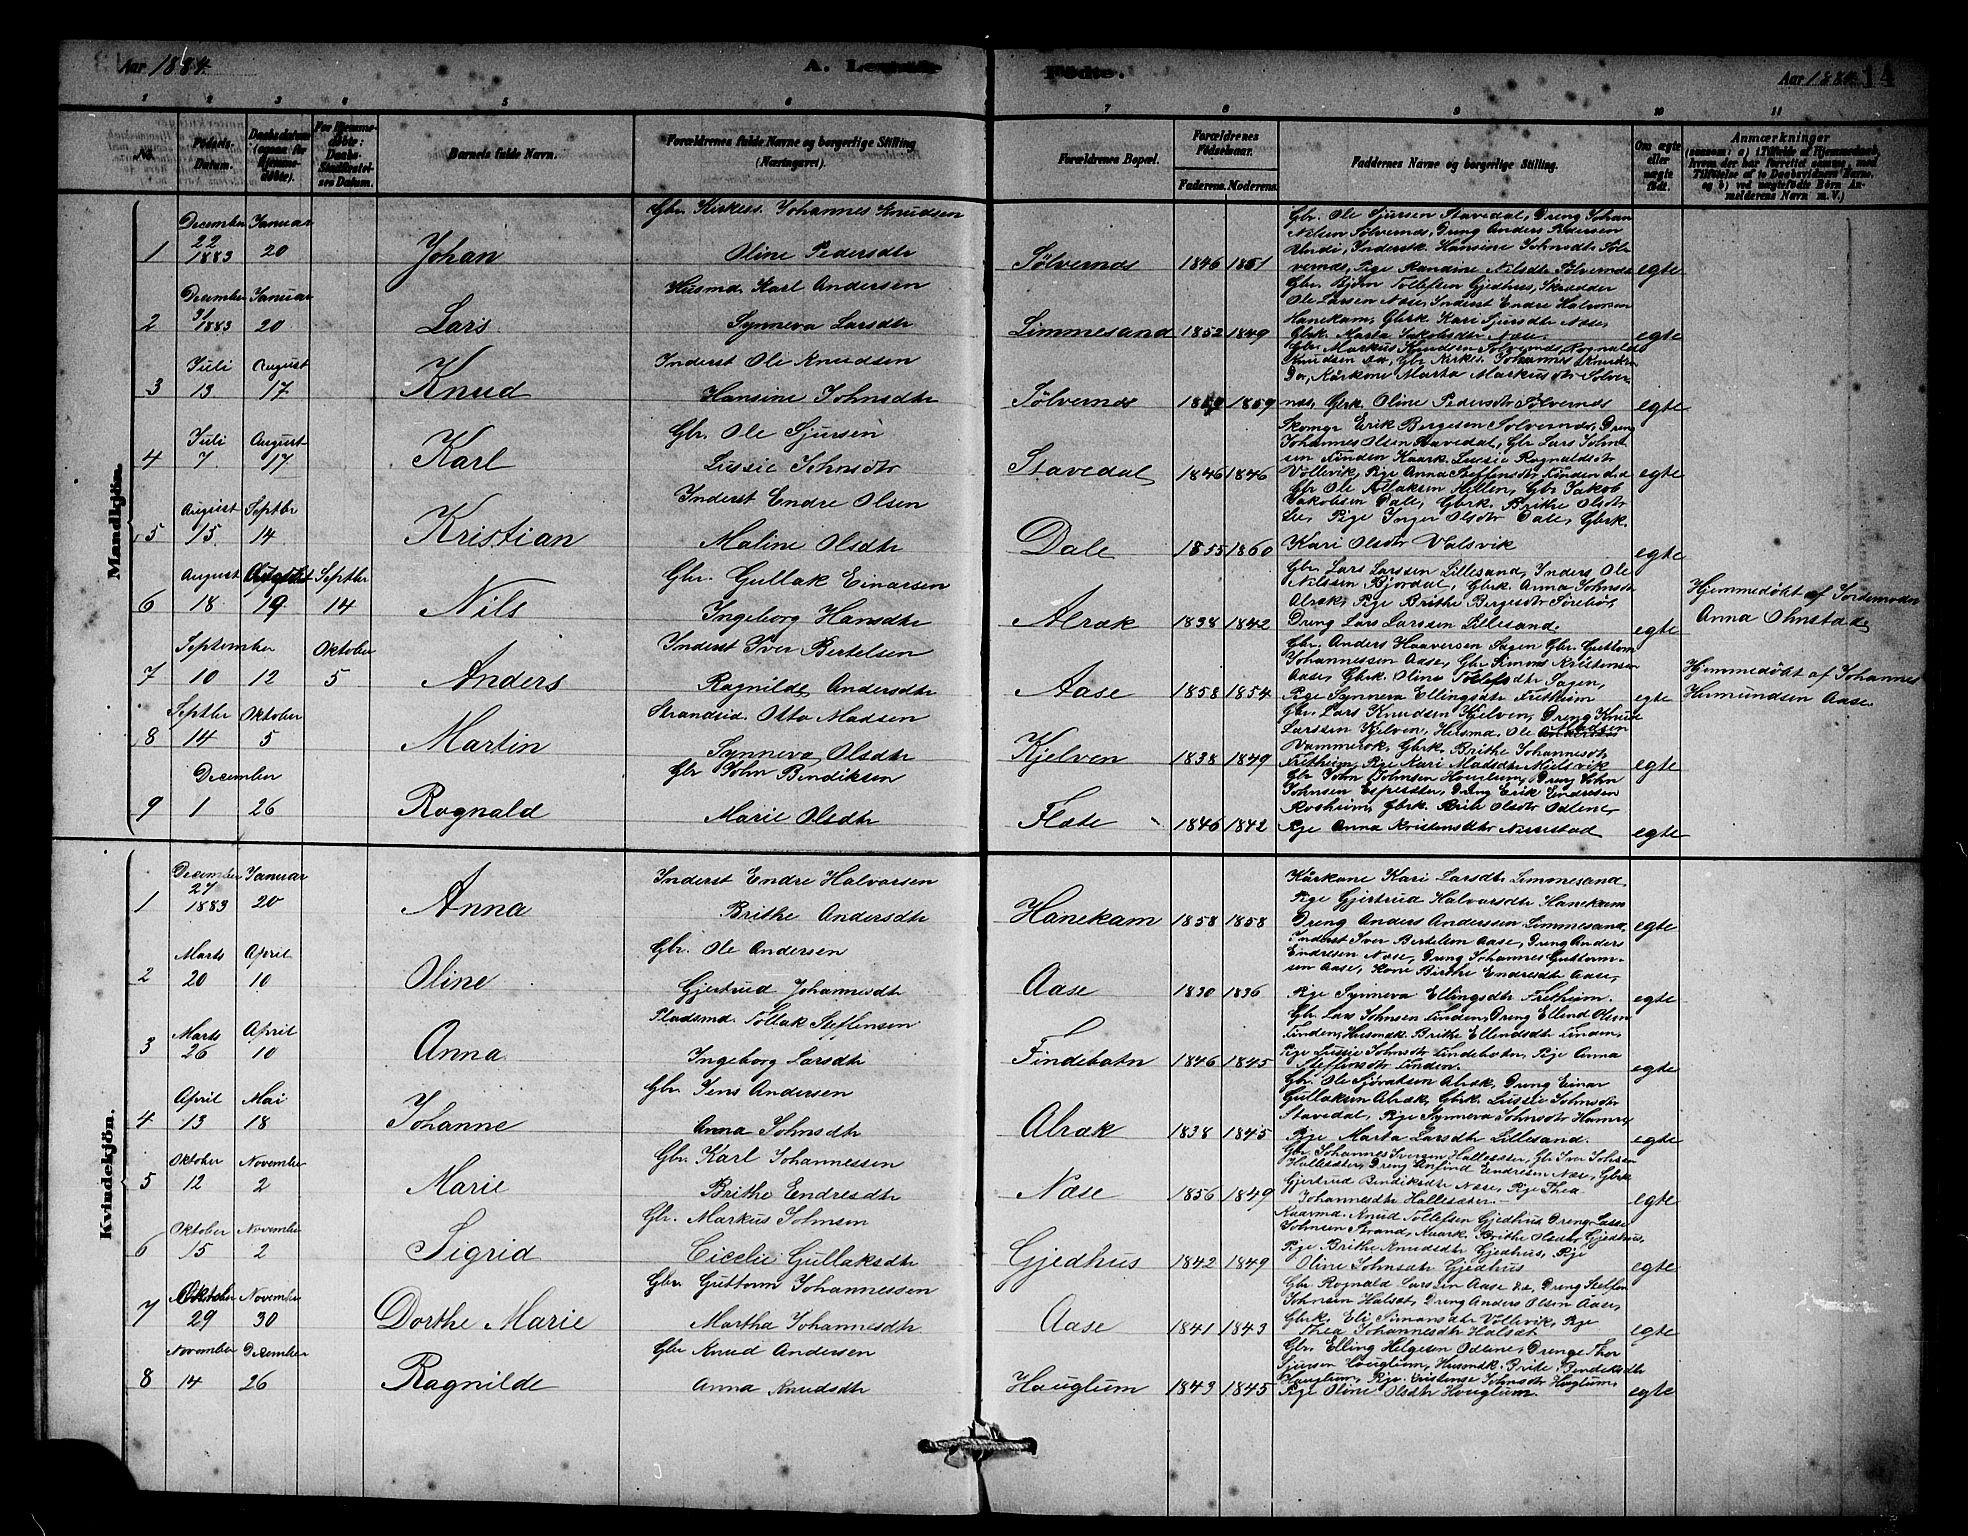 Aar 1884. A. Levende Fødte. Aar 1884. 14
1 2 3 4 5 6 7 8 9 10 11
No. Fødsels-Datum. Daabsdatum (ogsaa for Hjemmedøbte). For Hjemmedøbte: Daabs-Stadfæstelsens Datum. Barnets fulde Navn. Forældrenes fulde Navne og borgerlige Stilling (Næringsvei). Forældrenes Bopæl. Forældrenes Fødselsaar. Faderens. Moderens. Faddernes Navne og borgerlige Stilling. Om ægte eller uægte født. Anmærkninger (saasom: a) i Tilfælde af Hjemmedaab, hvem der har forrettet samme, med Tilføielse af to Daabsvidners Navne, og b) ved uægtefødte Børn Anmelderens Navn m. V.)
Mandkjön.
1 December 22 1883 Januar 20 Johan Gbr. Kirkes. Johannes Knudsen
Oline Pedersdtr Sølvernes 1846 1851 Gbr. Ole Sjursen Stavedal, Dreng Johan
Nilsen Sølvernes, Dreng Anders Pedersen
Hansine Johnsdtr Sølvernes, Pige Randine Nilsdtr Sølvernes egte
2 December 31 1883 Januar 20 Lars Husmd. Karl Andersen
Synneva Larsdtr Limmesand 1852 1849 Gbr. Bjørn Tollefsen Gjedhus, Skrædder
Ole Larsen Nase, Inderst Endre Halvorsen
Hanekam, Gbrk. Kari Sjursdtr Nase,
Gbrk. Marta Jakobsdtr Nase. egte
3 Juli 13 August 17 Knud Inderst Ole Knudsen
Hansine Johnsdtr Sølvernes 1859 1859 Gbr. Markus Knudsen Sølvernes, Rognald
Knudsen do, Gbr Kirkes. Johannes Knudsen
Do, Kårkone Marta Markusdtr Sølvernes, Gbrk. Oline Pedersdtr Sølvernes egte
4 Juli 7 August 17 Karl Gbr. Ole Sjursen
Lussie Johnsdtr Stavedal 1846 1846 Skomgr Erik Bergesen Sølvernes, Dreng
Johannes Olsen Stavedal, Gbr Lars Johnsen Finden, Kaark. Lussie Rognaldsdtr
Vollevik, Pige Anna Steffensdtr Finden egte
5 August 15 Septbr 14 Kristian Inderst Endre Olsen
Maline Olsdtr Dale 1855 1860 Gbr Ole Gbr Jakob
Jakobsen Dale, Gbrk. Brithe Olsdtr
Pige Inger Olsdtr Dale, Gbrk.
Kari Olsdtr Valsvik egte
6 August 18 August 19 Septbr 14 Nils Gbr. Gullak Einarsen
Ingeborg Hansdtr Alrak 1838 1842 Gbr Lars Larssen Lillesand, Inders Ole
Nilssen Bjordal, Gbrk Anna Johnsdtr
Alrak, Pige Brithe Bergesdtr Sørebø,
Dreng Lars Larssen Lillesand. egte Hjemmedøbt af Jordemoder
Anna Ohnstad
7 September 10 12 Oktober 5 Anders Inderst Iver Bertelsen
Ragnilde Andersdtr Aase 1858 1854 Gbr. Anders Haaversen Sagen Gbr. Guttorm
Johannessen Aase, Gbr Simon Kristensen
Aase, Gbrk. Oline Sagen,
Pige Synneva Ellingsdtr Fretheim egte Hjemmedøbt af Johannes
Hermundsen Aase.
8 Septbr 14 Oktober 5 Martin Strandsid. Otto Madsen
Synneva Olsdtr Kjelven 1838 1849 Gbr. Lars Knudsen Kjelven, Dreng Knud
Larssen Kjelven, Husmd. Ole Madsen
Vammerok, Gbrk. Brithe Johannesdtr
Fretheim, Pige Kari Madsdtr Nielsvik egte
9 December 1 26 Rognald Gbr John Bendiksen
Marie Olsdtr Flete 1846 1842 Gbr John Johnsen Houglum, Dreng John
Johnsen Espesæter, Dreng Erik Endresen
Rosheim, Gbrk. Brite Olsdtr Odlene,
Pige Anna Kristensdtr Nissestad egte
Kvindekjön.
1 December 27 1883 Januar 20 Anna Inderst Endre Halvorsen
Brithe Andersdtr Hanekam 1858 1858 Kårkone Kari Larsdtr Limmesand
Pige Gjertrud Halvorsdtr Hanekam
Dreng Anders Anderssen Limmesand, egte
2 Marts 20 April 10 Oline Gbr. Ole Andersen
Gjertrud Johannesdtr Aase 1830 1836 Inderst Iver Bertelsen Aase, Dreng Anders
Endresen Nase, Dreng Johannes Guttormsen Aase, Kone Birthe Endresdtr Aase,
Pige Synneva Ellingsdtr Fretheim. egte
3 Marts 26 April 10 Anna Pladsmd. Tollak Steffensen
Ingeborg Larsdtr Findebotn 1846 1845 Gbr. Lars Johnsen Finden, Dreng Ellend Olsen
Finden, Husmdk. Brithe Ellendsdtr Finden,
Pige Lussie Johnsdtr Findebotn, Pige Anna
Steffensdtr Finden. egte
4 April 13 Mai 18 Johanne Gbr. Jens Andersen
Anna Johnsdtr Alrak 1838 1845 Gbr. Ole Sjovatsen Alrak, Dreng Einar
Gullaksen Alrak, Gbrk. Lussie Johnsdtr
Stavedal, Pige Synneva Johnsdtr Hamre,
Pige Marta Larsdtr Lillesand. egte
5 Oktober 12 November 2 Marie Gbr. Karl Johannessen
Brithe Endresdtr Nase 1856 1849 Gbr. Johannes Iversen Hallesæter, Gbr Iver Johnsen
Hallesæter, Dreng Anfind Endresen Nase, Gbrk
Gjertrud Bendiksdtr Nase, Pige Thea
Johannesdtr Hallesæter. egte
6 Oktober 15 November 2 Sigrid Gbr. Markus Johnsen
Cicelie Gullaksdtr Gjedhus 1842 1849 Kaarmd. Knud Tollefsen Gjedhus Dreng Lasse
Johnsen Strand, Kaark. Brithe Olsdtr Gjedhus,
Pige Brithe Knudsdtr Gjedhus, Pige
Oline Johnsdtr Gjedhus egte
7 Oktober 29 November 30 Dorthe Marie Gbr. Guttorm Johannessen
Martha Johannesdtr Aase 1841 1843 Gbr Rognald Larssen Aase Dreng Steffen
Johnsen Halset, Dreng Anders Olsen Aase,
Gbrk. Eli Simonsdtr Vollevik, Pige
Thea Johannesdtr Halset egte
8 November 14 December 26 Ragnilde Gbr Knud Andersen
Anna Knudsdtr Houglum 1843 1845 Gbr. Elling Helgesen Odlene, Dreng Thor
Sjursen Houglum, Husmdk. Brite Bendiksdtr
Houglum, Pige Kristense Johnsdtr Houglum,
Pige Oline Olsdtr Houglum. egte